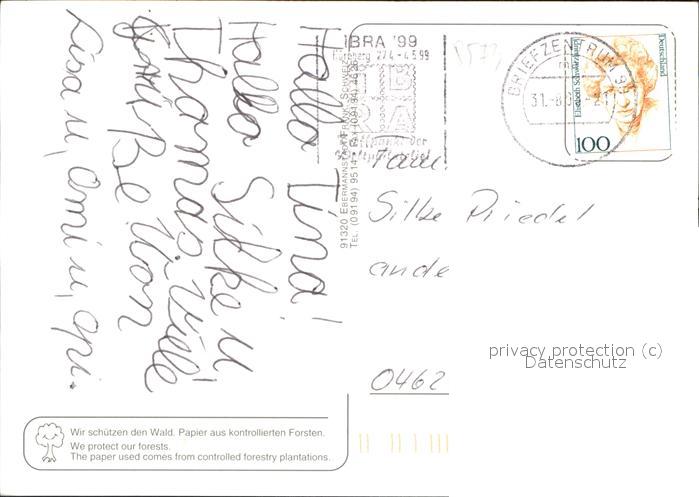 Hallo Tina!
Hallo Silke u
Thomas. Viele
Grüße von
Lisa u, omi u, opi.
91320 EBERMANNSTADT/FRÄNK. SCHWEIZ
TEL. (09194) 9514 FAX (09194) 4626
IBRA '99
27.4.-4.5.99
IB
RA
BRIEFZENTRUM
31.-8.
Deutschland
Elisabeth Schwarzhaupt
100
Fam.
Silke Riedel
ande
0462
privacy protection (c)
Datenschutz
Wir schützen den Wald. Papier aus kontrollierten Forsten.
We protect our forests.
The paper used comes from controlled forestry plantations.